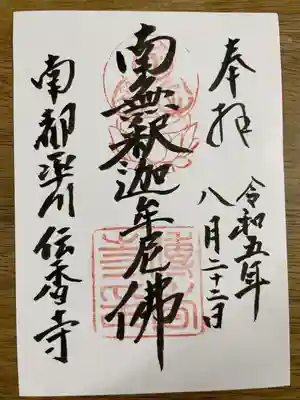 奉拝
令和五年
八月二十二日
南無釈迦牟尼佛
南都率川
伝香寺